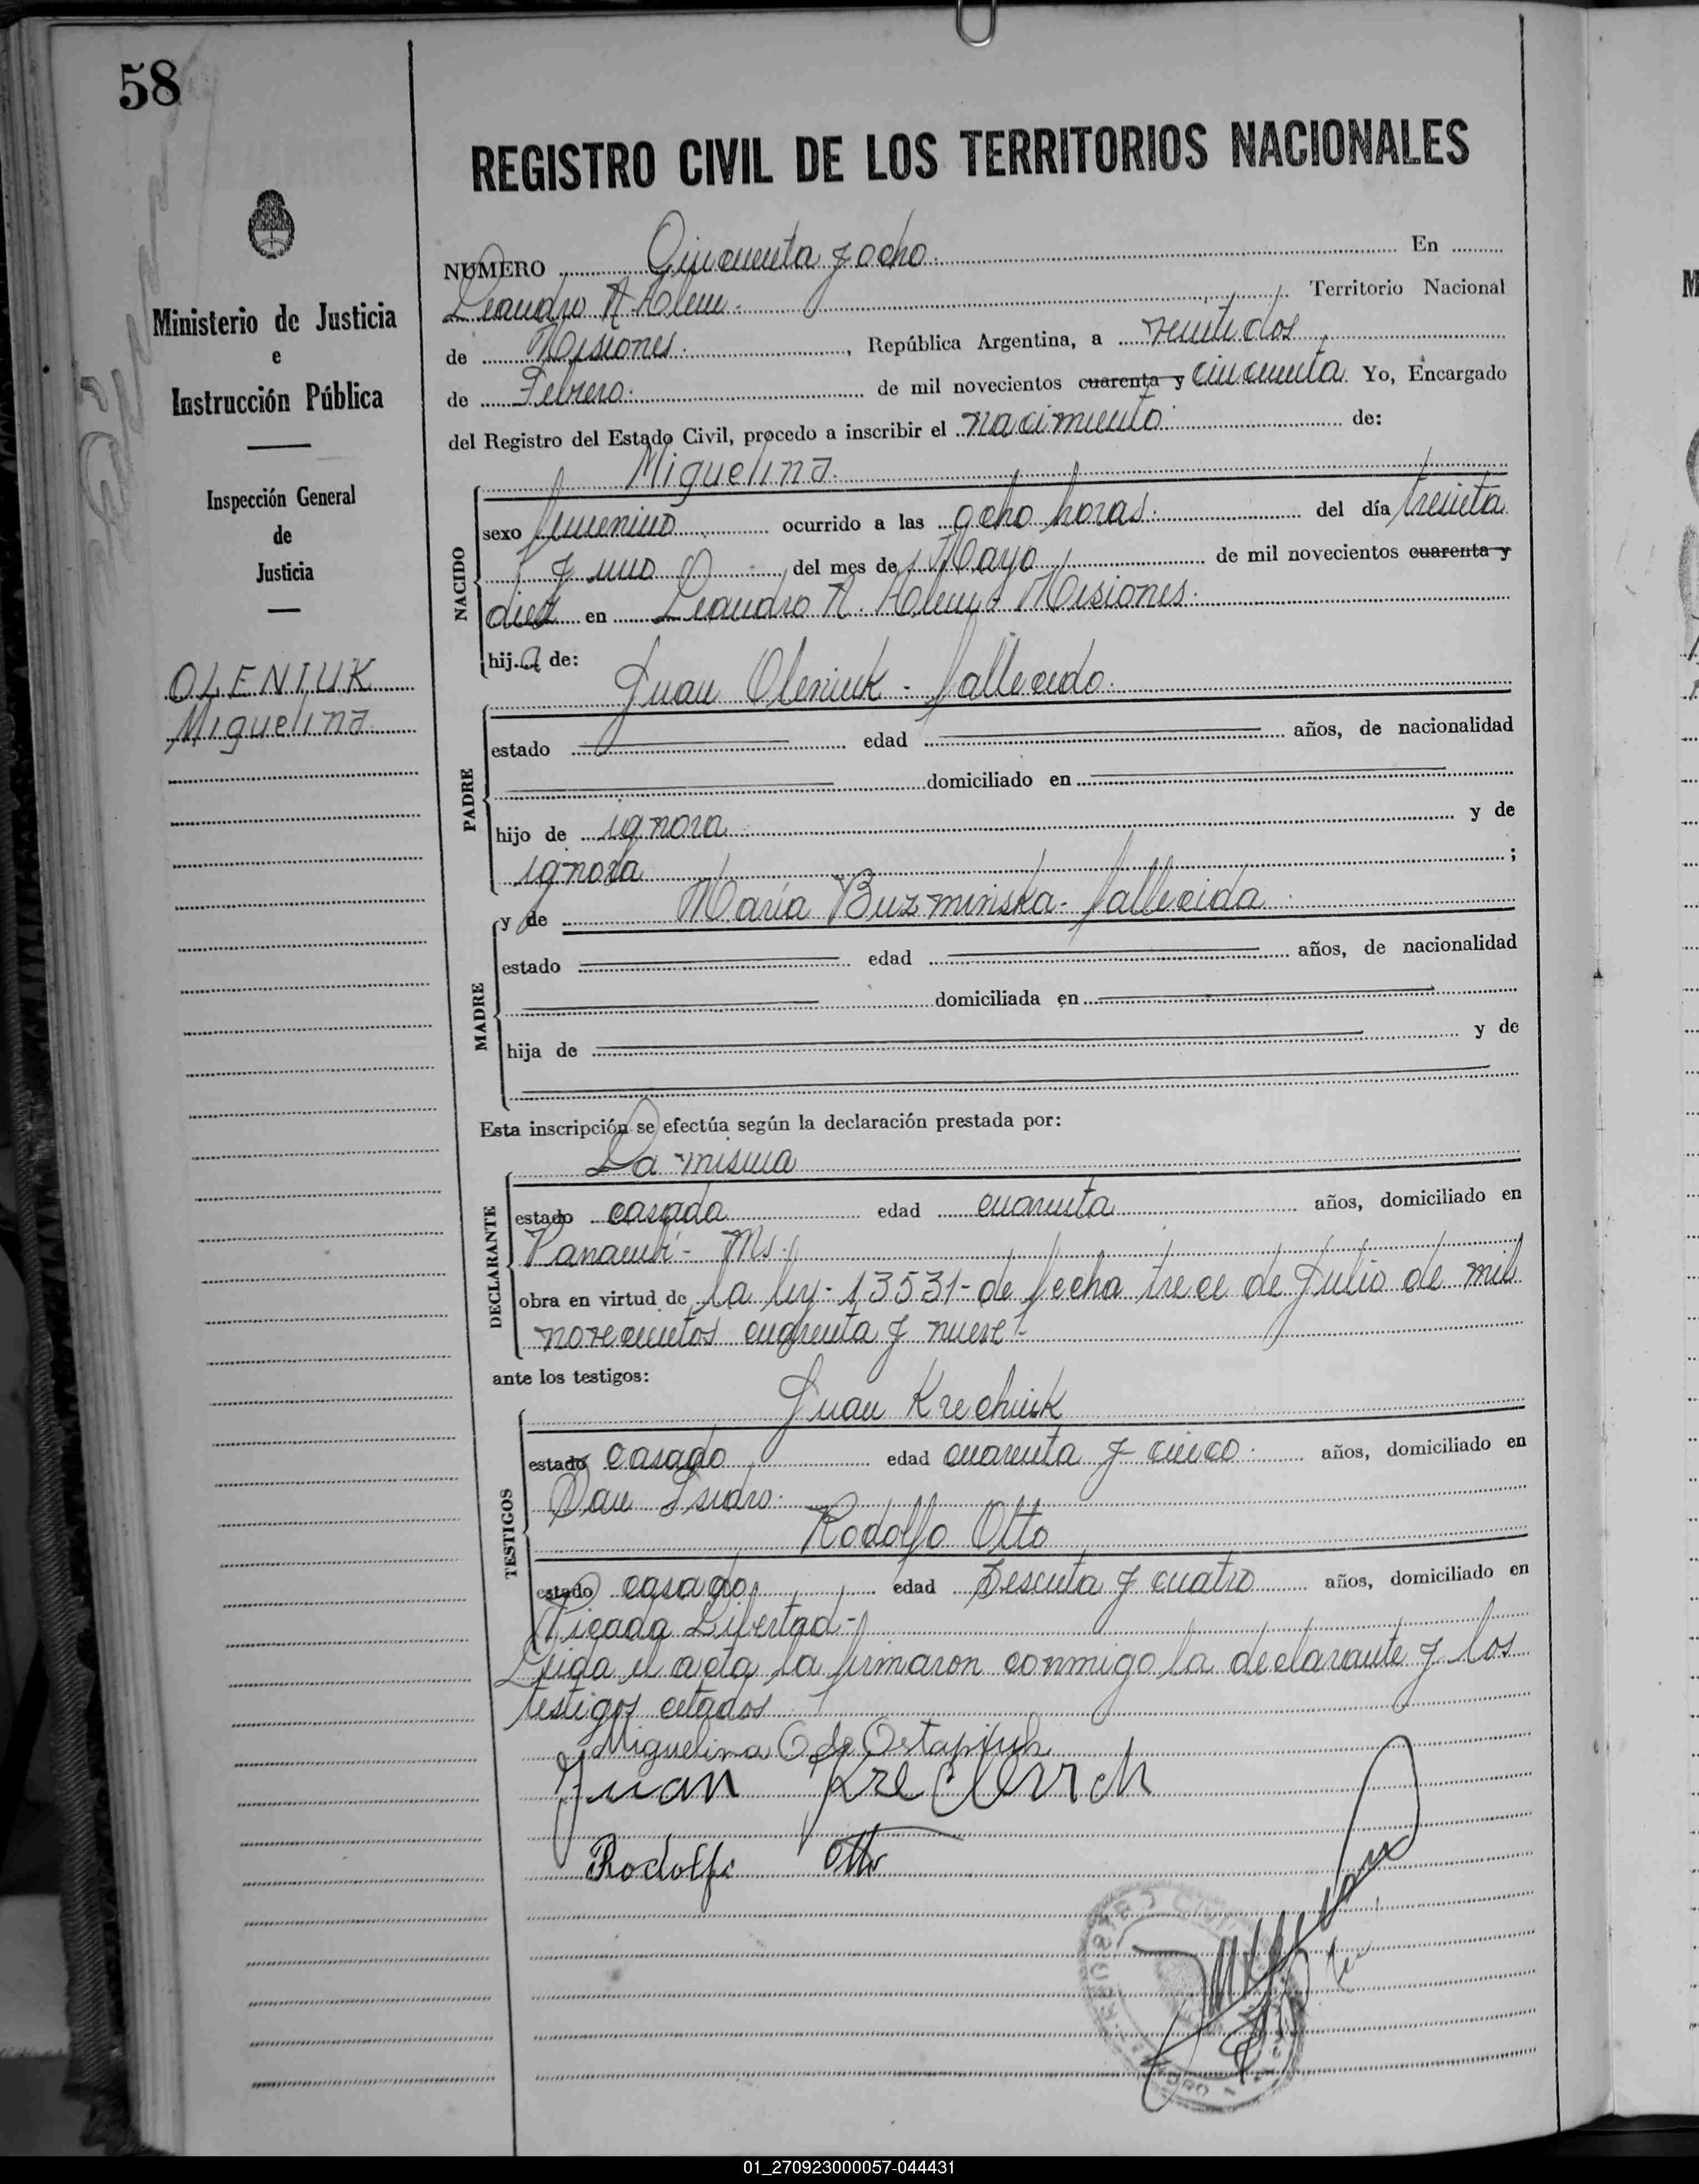 58
REGISTRO CIVIL DE LOS TERRITORIOS NACIONALES
Ministerio de Justicia
e
Instrucción Pública
Inspección General
de
Justicia
OLENIUK
Miguelina
NUMERO Cincuenta y ocho. En
Leandro N. Alem. Territorio Nacional
de Misiones. , República Argentina, a veintidos
de Febrero. de mil novecientos cuarenta y cincuenta. Yo, Encargado
del Registro del Estado Civil, procedo a inscribir el nacimiento de:
Miguelina.
NACIDO
sexo femenino ocurrido a las ocho horas. del día treinta
y uno del mes de Mayo de mil novecientos cuarenta y
diez en Leandro N. Alem, Misiones.
hija de:
Juan Oleniuk - fallecido.
PADRE
estado edad años, de nacionalidad
domiciliado en
hijo de ignora y de
ignora ;
y de María Buzminska - fallecida
MADRE
estado edad años, de nacionalidad
domiciliada en
hija de y de
Esta inscripción se efectúa según la declaración prestada por:
La misma
DECLARANTE
estado casada edad cuarenta años, domiciliado en
Panambí - Ms.
obra en virtud de la ley - 13531 - de fecha trece de Julio de mil
novecientos cuarenta y nueve -
ante los testigos:
Juan Krechiuk
TESTIGOS
estado casado edad cuarenta y cinco. años, domiciliado en
San Isidro.
Rodolfo Otto
estado casado edad sesenta y cuatro años, domiciliado en
Picada Libertad -
Leida el acta la firmaron conmigo la declarante y los
testigos citados
Miguelina O de Ostapiuk
Juan
Rodolfo Otto
01_270923000057-044431